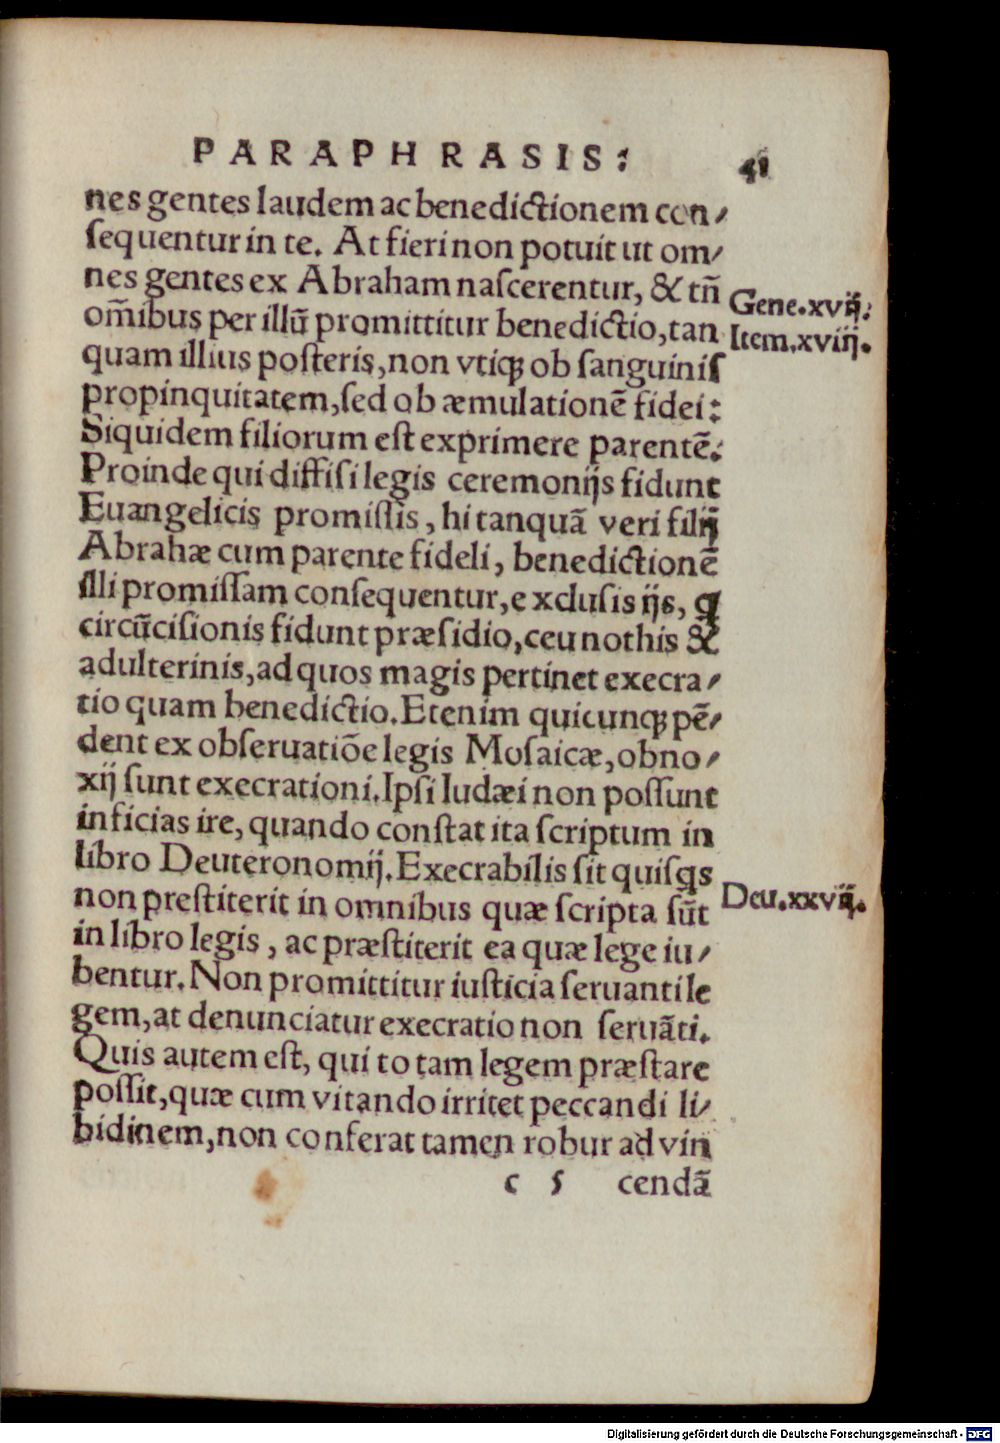 PARAPHRASIS: 41
nes gentes laudem ac benedictionem con⸗
ſequentur in te. At fieri non potuit ut om⸗
nes gentes ex Abraham naſcerentur, & tñ
om̃ibus per illũ promittitur benedictio, tan
quam illius poſteris, non vtiqꝫ ob sanguinis
propinquitatem, ſed ob æmulationẽ fidei:
Siquidem filiorum eſt exprimere parentẽ.
Proinde qui diffiſi legis ceremonijs fidunt
Euangelicis promiſſis, hi tanquã veri filij
Abrahæ cum parente fideli, benedictionẽ
illi promiſſam conſequentur, excluſis ijs, q̃
circũciſionis fidunt præſidio, ceu nothis &
adulterinis, ad quos magis pertinet execra⸗
tio quam benedictio. Etenim quicunqꝫ pẽ⸗
dent ex obſeruatiõe legis Moſaicæ, obno⸗
xij ſunt execrationi. Ipſi Iudæi non poſſunt
inficias ire, quando conſtat ita ſcriptum in
libro Deuteronomij. Execrabilis ſit quiſqs
non preſtiterit in omnibus quæ ſcripta ſũt
in libro legis, ac præſtiterit ea quæ lege iu⸗
bentur. Non promittitur iuſticia ſeruanti le
gem, at denunciatur execratio non ſeruãti.
Quis autem eſt, qui totam legem præſtare
poſſit, quæ cum vitando irritet peccandi li⸗
bidinem, non conferat tamen robur ad vin
c 5 cendã
Gene.xvij.
Item.xviij.
Deu.xxvij.
Digitalisierung gefördert durch die Deutsche Forschungsgemeinschaft - DFG